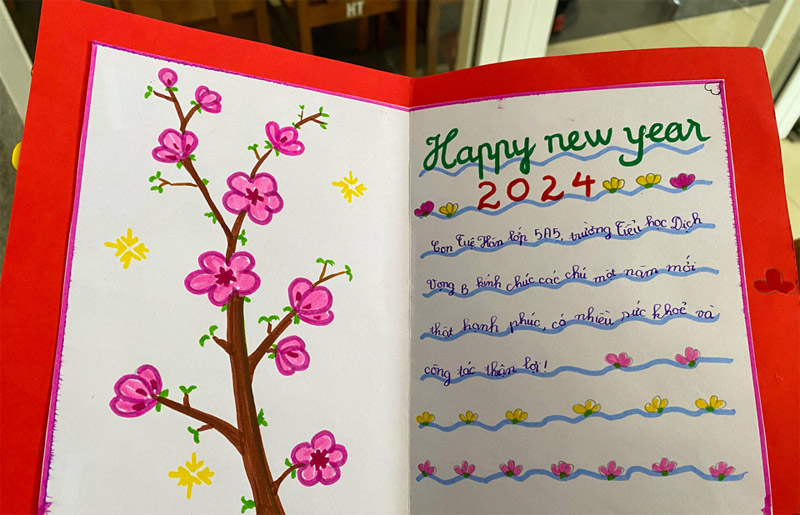 HT
Happy new year
2024
Con Tuệ Hân lớp 5A5, trường Tiểu học Dịch
Vọng B kính chúc các chú một năm mới
thật hạnh phúc, có nhiều sức khoẻ và
công tác thuận lợi!